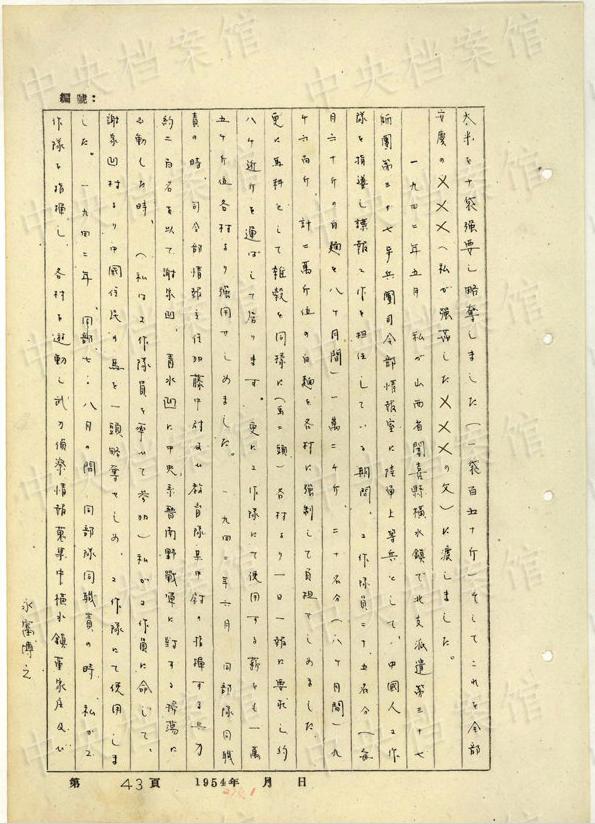 編號:
大米を十袋強要し略奪しました(一袋百五十斤)そしてこれを全部
安慶の×××(私が強姦した×××の父)に渡しました。
一九四二年五月 私が山西省聞喜縣横水鎮で北支派遣第三十七
師團第三十七号兵團司令部情報室に陸軍上等兵として、中國人工作
隊を指導し諜報工作を担任している期間、工作隊員二十五名分(毎
月六十斤の白麺を八ヶ月間)一萬二千斤、二十名分(八ヶ月間)九
千六百斤、計二萬斤位の白麺を各村に強制して負担せしめました。
更に馬料として雑穀を同様に(馬二頭)各村より一日一部に要求し約
八千近斤を運ばして居ります。更に工作隊にて使用する薪をも一萬
五千斤位各村より強用せしめました。 一九四二年六月 同部隊同職
責の時、司令部情報主任加藤中尉及び教育隊某中尉の指揮する兵力
約二百名を以て謝家凹、青水凹に中央系晋南野戰軍に対する掃蕩に
出動した時、(私は工作隊員を率いて参加)私が工作員に命じて、
謝家凹村より中國住民の馬を一頭略奪せしめ、工作隊にて使用しま
した。一九四二年、同部七、八月の間 同部隊同職責の時、私が工
作隊を指揮し、各村を遊動し武力偵察情報蒐集中横水鎮董家庄及び
永富博之
第 43 頁 1954年 月 日
中央档案馆